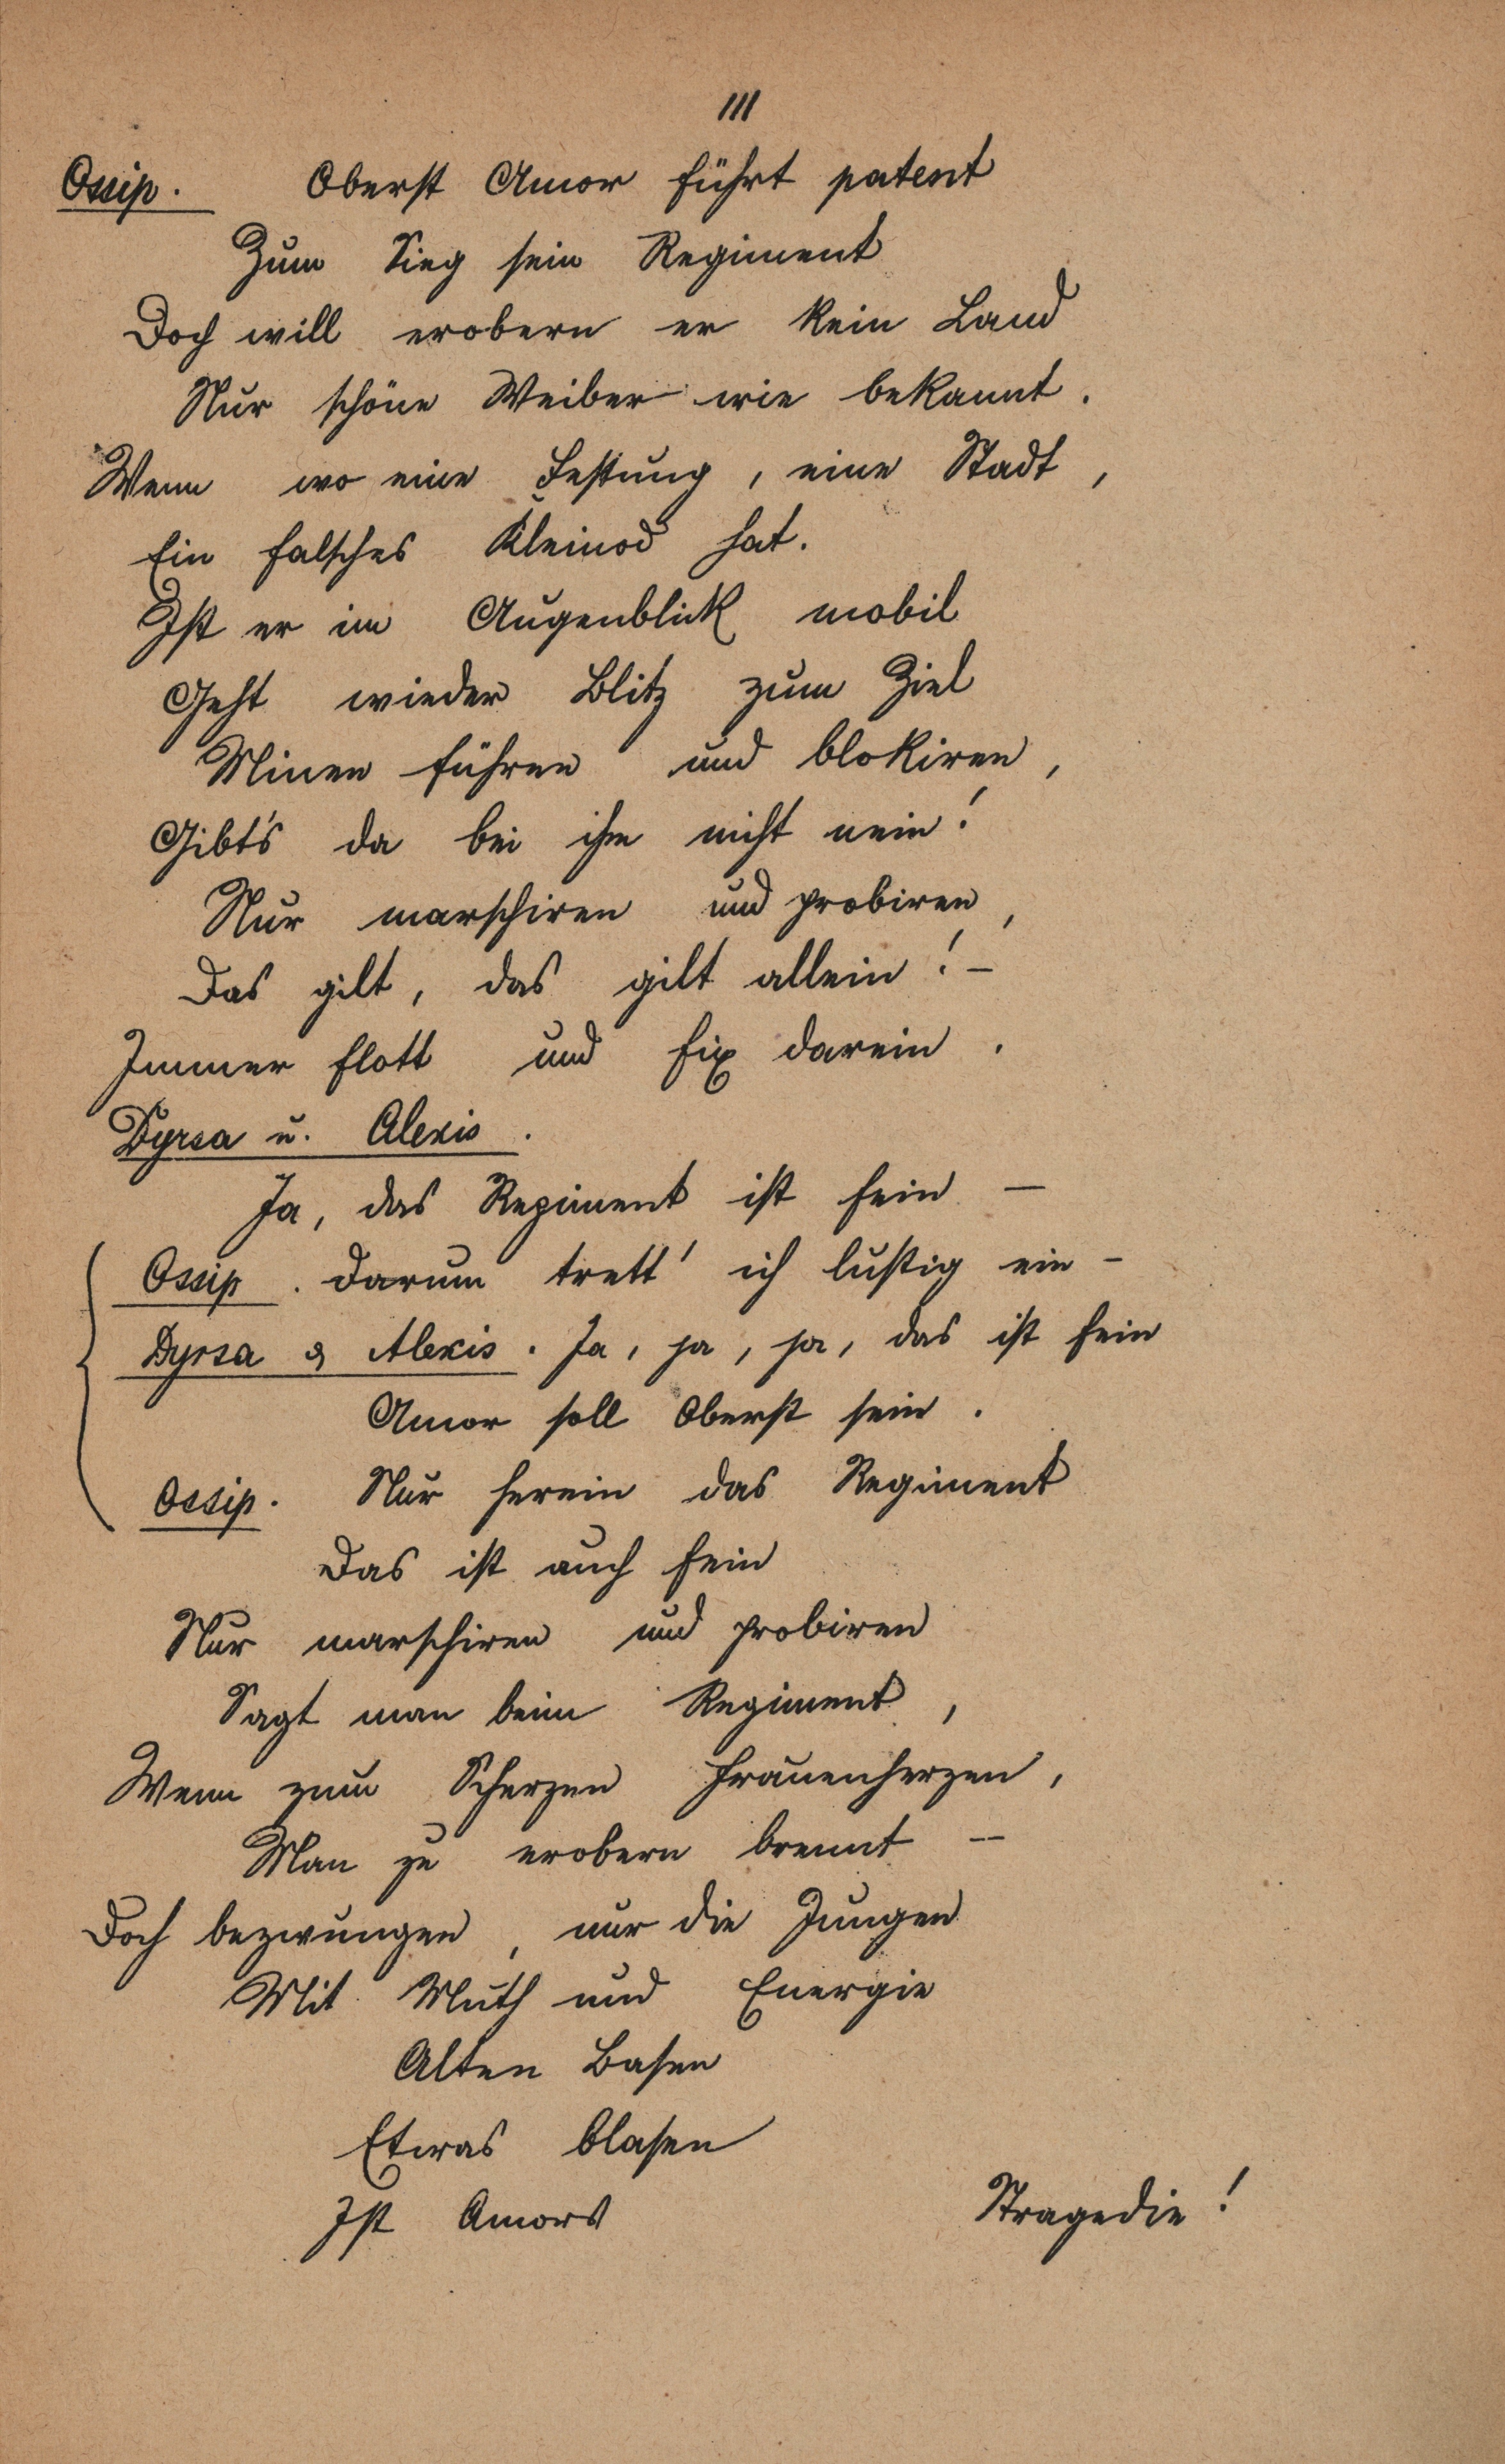 III
Ossip. Oberst Amor führt patent
Zum Sieg sein Regiment
Doch will erobern er kein Land
Nur schöne Weiber wie bekannt.
Wenn wo eine Festung, eine Stadt,
Ein falsches Kleinod hat.
Ist er im Augenblick mobil
Geht wieder Blitz zum Ziel
Minen führen und blokiren,
Gibt's da bei ihm nicht nein!
Nur marschiren und probiren,
Das gilt, das gilt allein! –
Immer flott und fix darein.
Dyrsa u. Alexis.
Ja, das Regiment ist fein –
Ossip. Darum trett' ich lustig ein –
Dyrsa & Alexis. Ja, ja, ja, das ist fein
Amor soll Oberst sein.
Ossip. Nur herein das Regiment
Das ist auch fein
Nur marschiren und probiren
Sagt man beim Regiment,
Wenn zum Scherzen Frauenherzen,
Man zu erobern brennt –
Doch bezwungen, nur die Jungen
Mit Muth und Energie
Alten Basen
Etwas blasen
Ist Amors Stragedie!